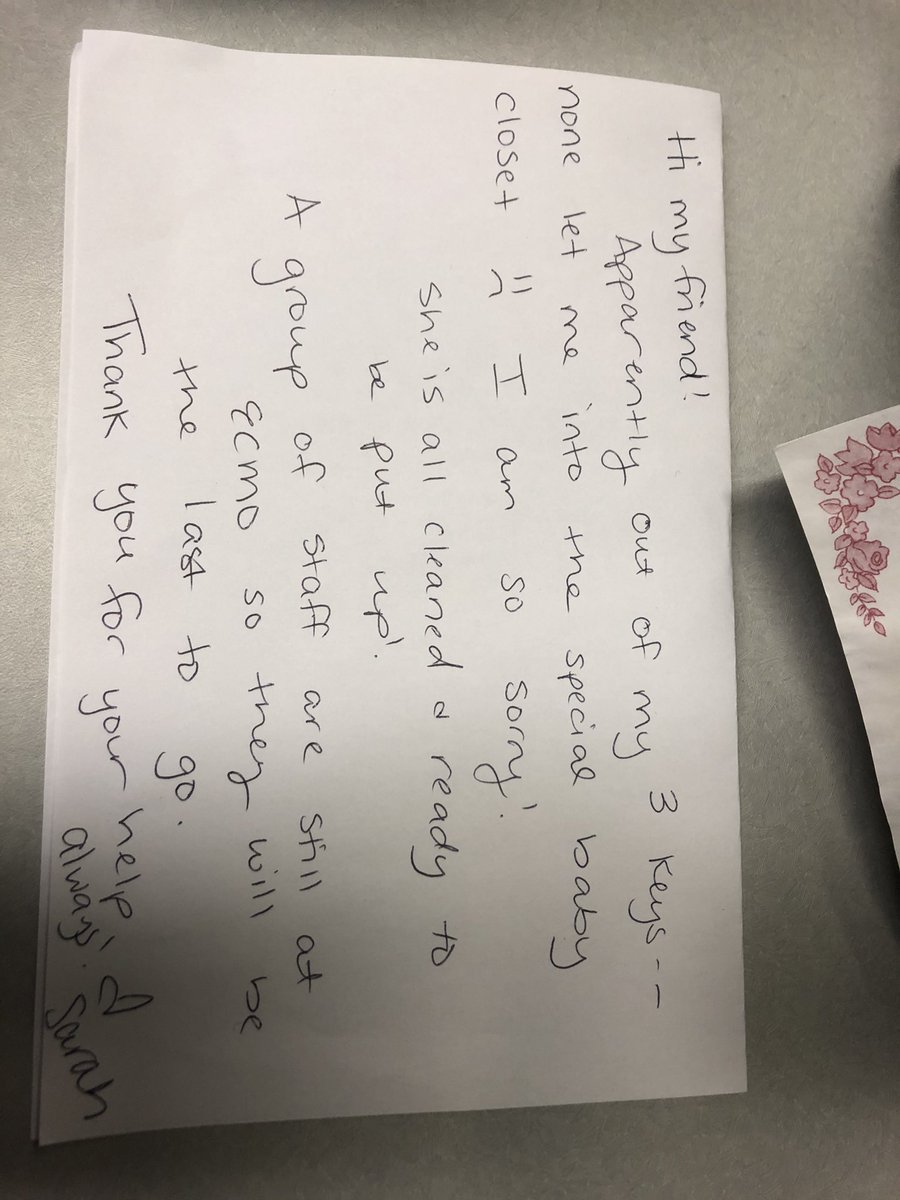 Hi my friend!
Apparently out of my 3 keys--
none let me into the special baby
closet =( I am so sorry!
she is all cleaned & ready to
be put up!
A group of staff are still at
ECMO so they will be
the last to go.
Thank you for your help! ♡
always! Sarah